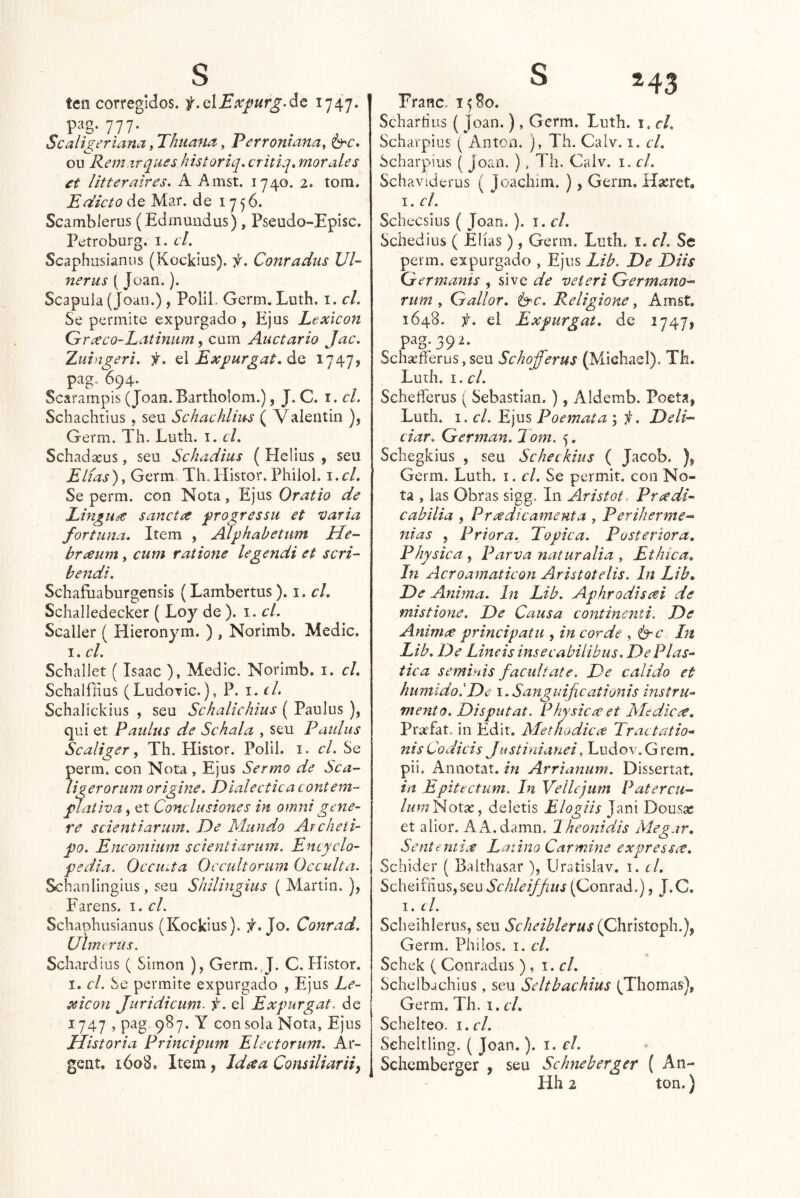 S
ten corregidos. ℣. el Expurg. de 1747.
pag. 777.
Scaligeriana, Thuana, Perroniana, &c.
ou Remarques historiq. critiq. morales
et litteraires. A Amst. 1740. 2. tom.
Edicto de Mar. de 1756.
Scamblerus (Edmundus), Pseudo-Episc.
Petroburg. 1. cl.
Scaphusianus (Kockius). ℣. Conradus Ul-
nerus ( Joan. ).
Scapula (Joan.), Polil. Germ. Luth. 1. cl.
Se permite expurgado, Ejus Lexicon
Græco-Latinum, cum Auctario Jac.
Zuingeri. ℣. el Expurgat. de 1747,
pag. 694.
Scarampis (Joan. Bartholom.), J. C. 1. cl.
Schachtius, seu Schachlius ( Valentin ),
Germ. Th. Luth. 1. cl.
Schadæus, seu Schadius ( Helius, seu
Elías), Germ. Th. Histor. Philol. 1. cl.
Se perm. con Nota, Ejus Oratio de
Linguæ sanctæ progressu et varia
fortuna. Item, Alphabetum He-
bræum, cum ratione legendi et scri-
bendi.
Schafuaburgensis ( Lambertus ). 1. cl.
Schalledecker ( Loy de ). 1. cl.
Scaller ( Hieronym. ), Norimb. Medic.
1. cl.
Schallet ( Isaac ), Medic. Norimb. 1. cl.
Schalffius (Ludovic.), P. 1. cl.
Schalickius, seu Schalichius ( Paulus ),
qui et Paulus de Schala, seu Paulus
Scaliger, Th. Histor. Polil. 1. cl. Se
perm. con Nota, Ejus Sermo de Sca-
ligerorum origine. Dialectica contem-
plativa, et Conclusiones in omni gene-
re scientiarum. De Mundo Archeti-
po. Encomium scientiarum. Encyclo-
pedia. Occulta Occultorum Occulta.
Schanlingius, seu Shilingius ( Martin. ),
Farens. 1. cl.
Schaphusianus (Kockius). ℣. Jo. Conrad.
Ulmerus.
Schardius ( Simon ), Germ. J. C. Histor.
1. cl. Se permite expurgado, Ejus Le-
xicon Juridicum. ℣. el Expurgat. de
1747, pag. 987. Y con sola Nota, Ejus
Historia Principum Electorum. Ar-
gent. 1608. Item, Idæa Consiliarii,
S 243
Franc. 1580.
Scharfius ( Joan. ), Germ. Luth. 1. cl.
Scharpius ( Anton. ), Th. Calv. 1. cl.
Scharpius ( Joan. ), Th. Calv. 1. cl.
Schaviderus ( Joachim. ), Germ. Hæret.
1. cl.
Schecsius ( Joan. ). 1. cl.
Schedius ( Elías ), Germ. Luth. 1. cl. Se
perm. expurgado, Ejus Lib. De Diis
Germanis, sive de veteri Germano-
rum, Gallor. &c. Religione, Amst.
1648. ℣. el Expurgat. de 1747,
pag. 392.
Schæfferus, seu Schofferus (Michael). Th.
Luth. 1. cl.
Schefferus ( Sebastian. ), Aldemb. Poeta,
Luth. 1. cl. Ejus Poemata; ℣. Deli-
ciar. German. Tom. 5.
Schegkius, seu Scheckius ( Jacob. ),
Germ. Luth. 1. cl. Se permit. con No-
ta, las Obras sigg. In Aristot. Prædi-
cabilia, Prædicamenta, Periherme-
nias, Priora. Topica. Posteriora.
Physica, Parva naturalia, Ethica.
In Acroamaticon Aristotelis. In Lib.
De Anima. In Lib. Aphrodisæi de
mistione. De Causa continenti. De
Animæ principatu, in corde, &c In
Lib. De Lineis insecabilibus. De Plas-
tica seminis facultate. De calido et
humido. De 1. Sanguificationis instru-
mento. Disputat. Physicæ et Medicæ.
Præfat. in Edit. Methodicæ Tractatio-
nis Codicis Justinianei, Ludov. Grem.
pii. Annotat. in Arrianum. Dissertat.
in Epitectum. In Vellejum Patercu-
lum Notæ, deletis Elogiis Jani Dousæ
et alior. AA. damn. Theonidis Megar.
Sententiæ Latino Carmine expressæ.
Schider ( Balthasar ), Uratislav. 1. cl.
Scheiffius, seu Schleiffius (Conrad.), J. C.
1. cl.
Scheihlerus, seu Scheiblerus (Christoph.),
Germ. Philos. 1. cl.
Schek ( Conradus ), 1. cl.
Schelbachius, seu Seltbachius (Thomas),
Germ. Th. 1. cl.
Schelteo. 1. cl.
Scheltling. ( Joan. ). 1. cl.
Schemberger, seu Schneberger ( An-
Hh 2 ton.)